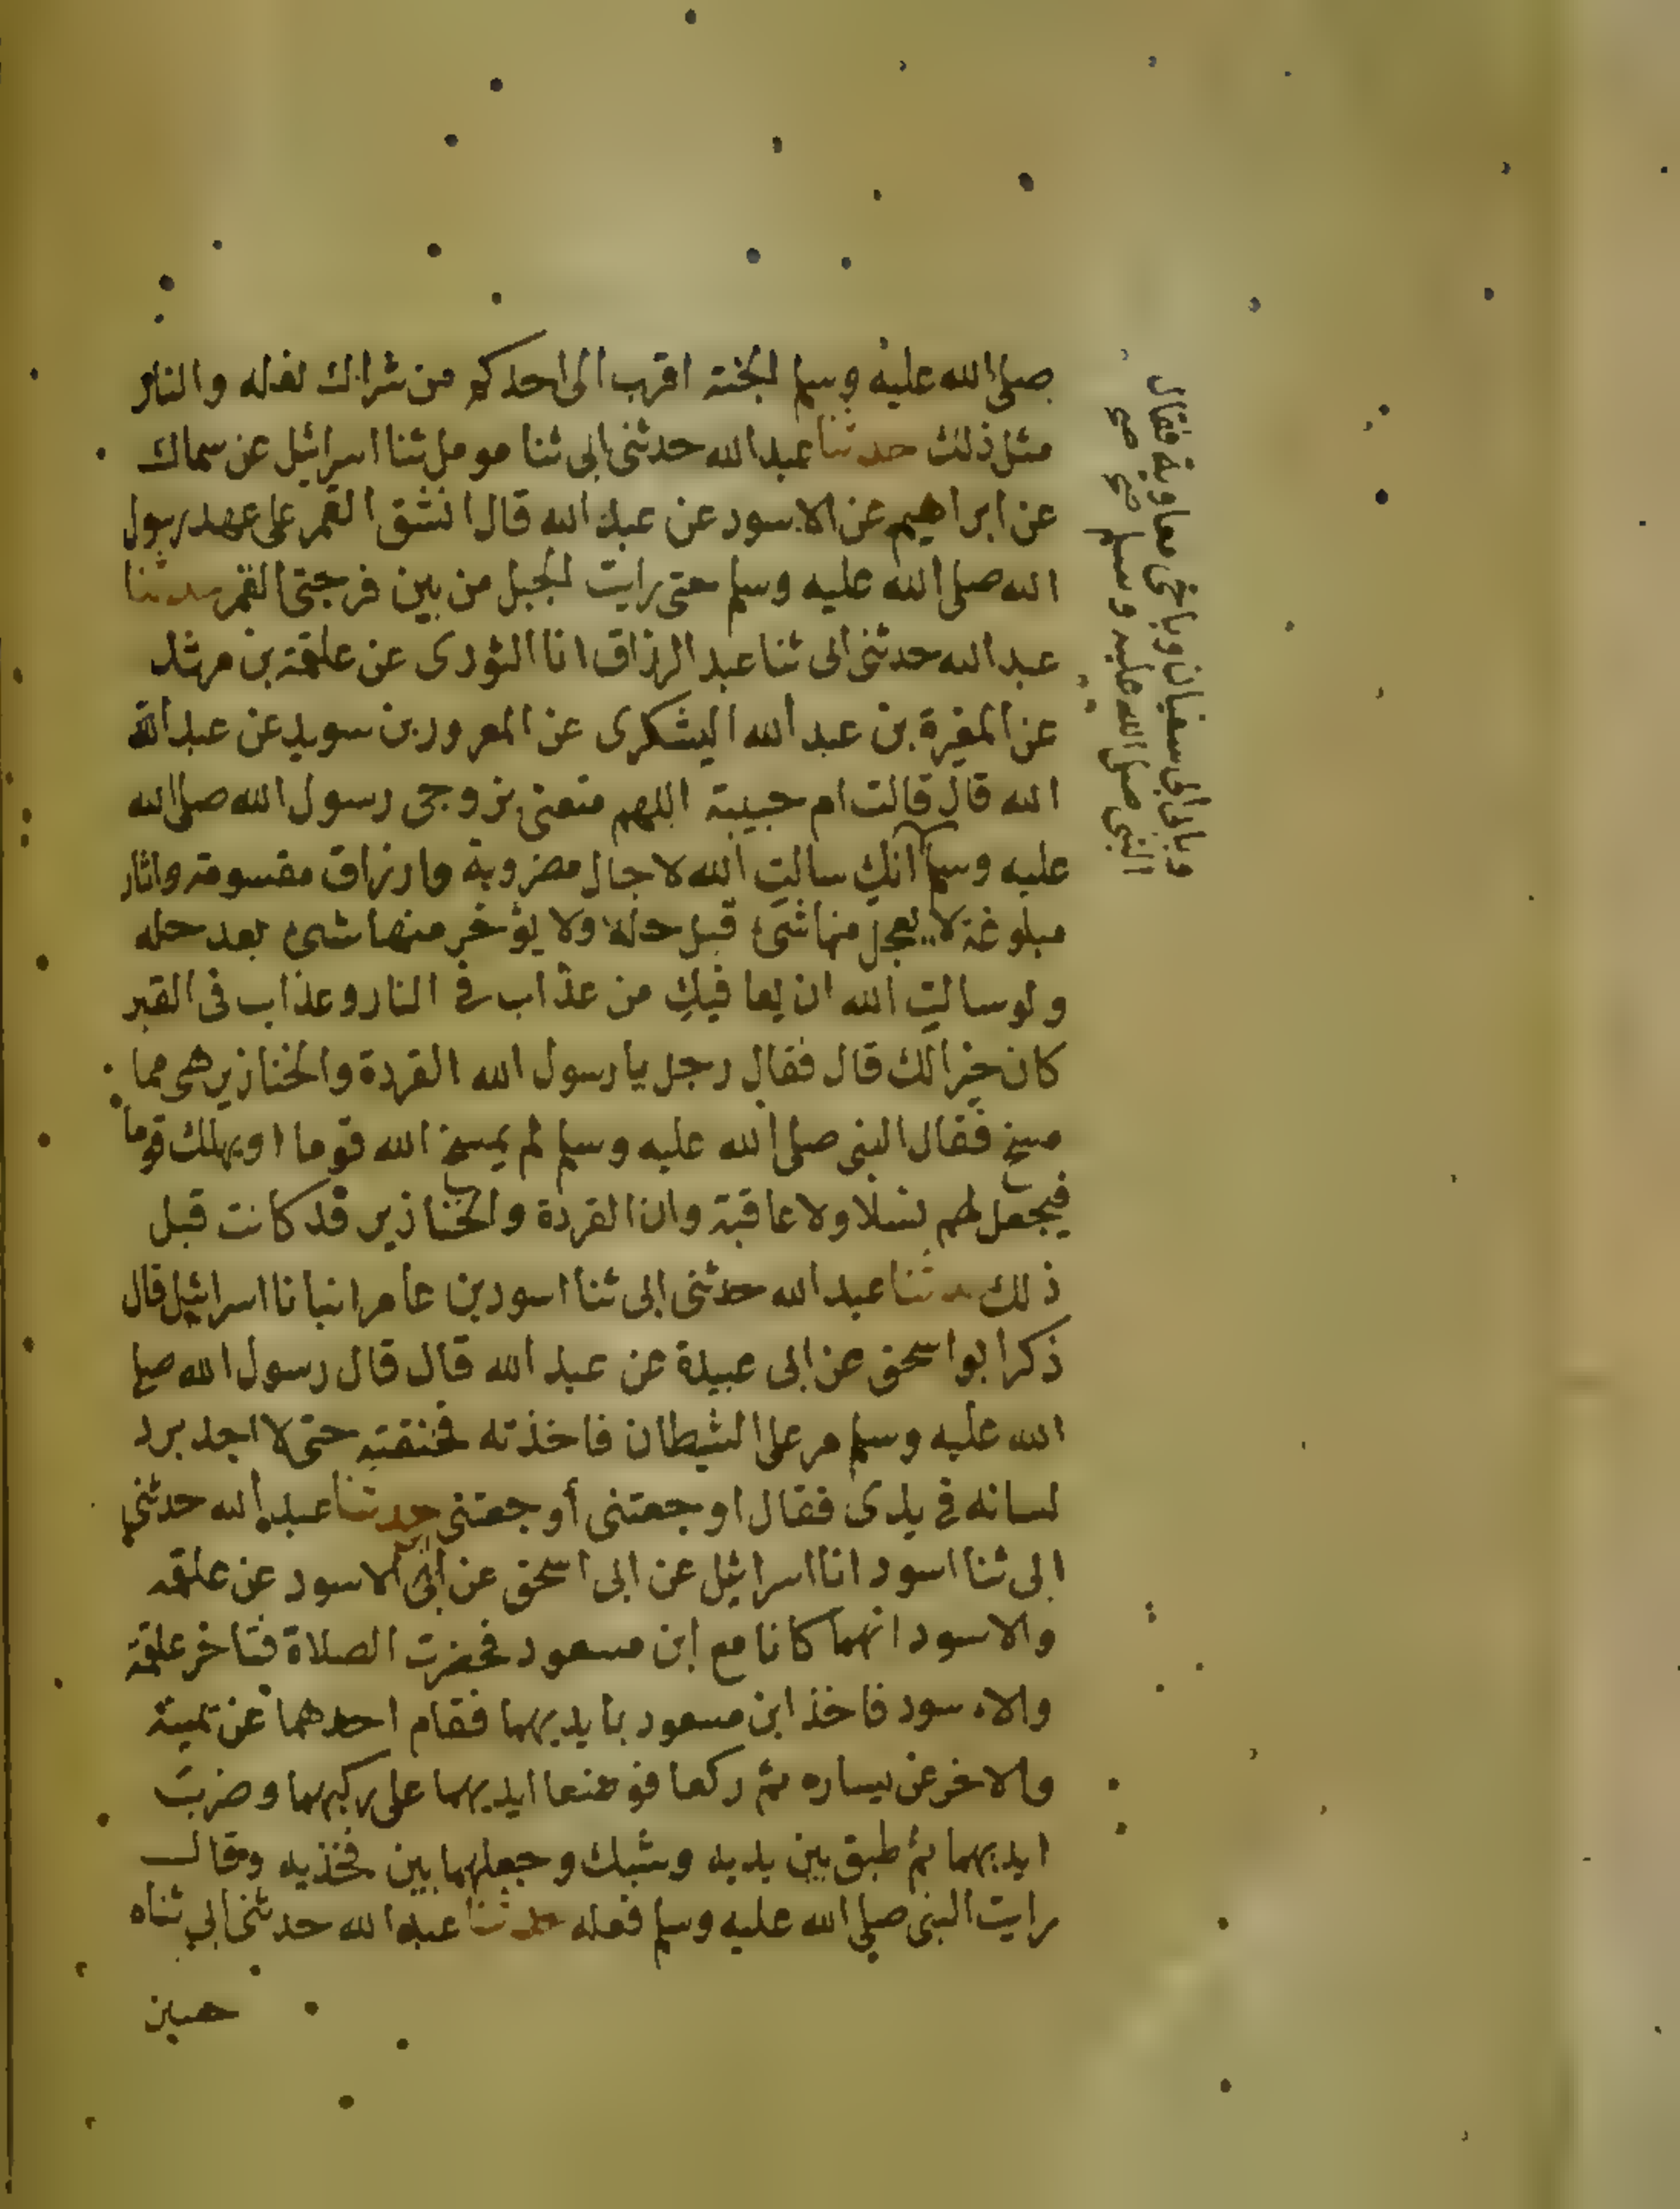 صلى الله عليه وسلم الجنة اقرب الى احدكم من شراك نعله والنار
مثل ذلك حدثنا عبد الله حدثنى ابى ثنا مومل ثنا اسرائيل عن سماك
عن ابراهيم عن الاسود عن عبد الله قال انشق القمر على عهد رسول
الله صلى الله عليه وسلم حتى رايت الجبل من بين فرجتى القمر حدثنا
عبد الله حدثنى ابى ثنا عبد الرزاق انا الثورى عن علقمة بن مرثد
عن المغيرة بن عبد الله اليشكرى عن المعرور بن سويد عن عبد الله
الله قال قالت ام حبيبة اللهم متعنى بزوجى رسول الله صلى الله
عليه وسلم انكِ سالتِ الله لاجال مضروبة وارزاق مقسومة واثار
مبلوغة لا يعجل منها شىء قبل حله ولا يؤخر منها شىء بعد حله
ولو سالتِ الله ان يعافيكِ من عذاب فى النار وعذاب فى القبر
كان خيرا لك قال فقال رجل يا رسول الله القردة والخنازير هى مما
مسخ فقال النبى صلى الله عليه وسلم لم يمسخ الله قوما او يهلك قوما
فيجعل لهم نسلا ولا عاقبة وان القردة والخنازير قد كانت قبل
ذلك حدثنا عبد الله حدثنى ابى ثنا اسود بن عامر انبانا اسرائيل قال
ذكر ابو اسحق عن ابى عبيدة عن عبد الله قال قال رسول الله صلى
الله عليه وسلم مر على الشيطان فاخذته فخنقته حتى لا اجد برد
لسانه فى يدى فقال اوجعتنى أوجعتنى حدثنا عبد الله حدثنى
ابى ثنا اسود انا اسرائيل عن ابى اسحق عن ابى الاسود عن علقمه
والاسود انهما كانا مع ابن مسعود فحضرت الصلاة فتاخر علقمة
والاسود فاخذ ابن مسعود بايديهما فقام احدهما عن يمينه
والاخر عن يساره ثم ركعا فوضعا ايديهما على ركبهما وضرب
ايديهما ثم طبق بين يديه وشبك وجعلهما بين فخذيه وقال
رايت النبى صلى الله عليه وسلم فعله حدثنا عبد الله حدثنى ابى ثناه
حسين
وبابى ابى سفيان وباخى معاوية فقال
النبى صلى الله عليه وسلم صح صح